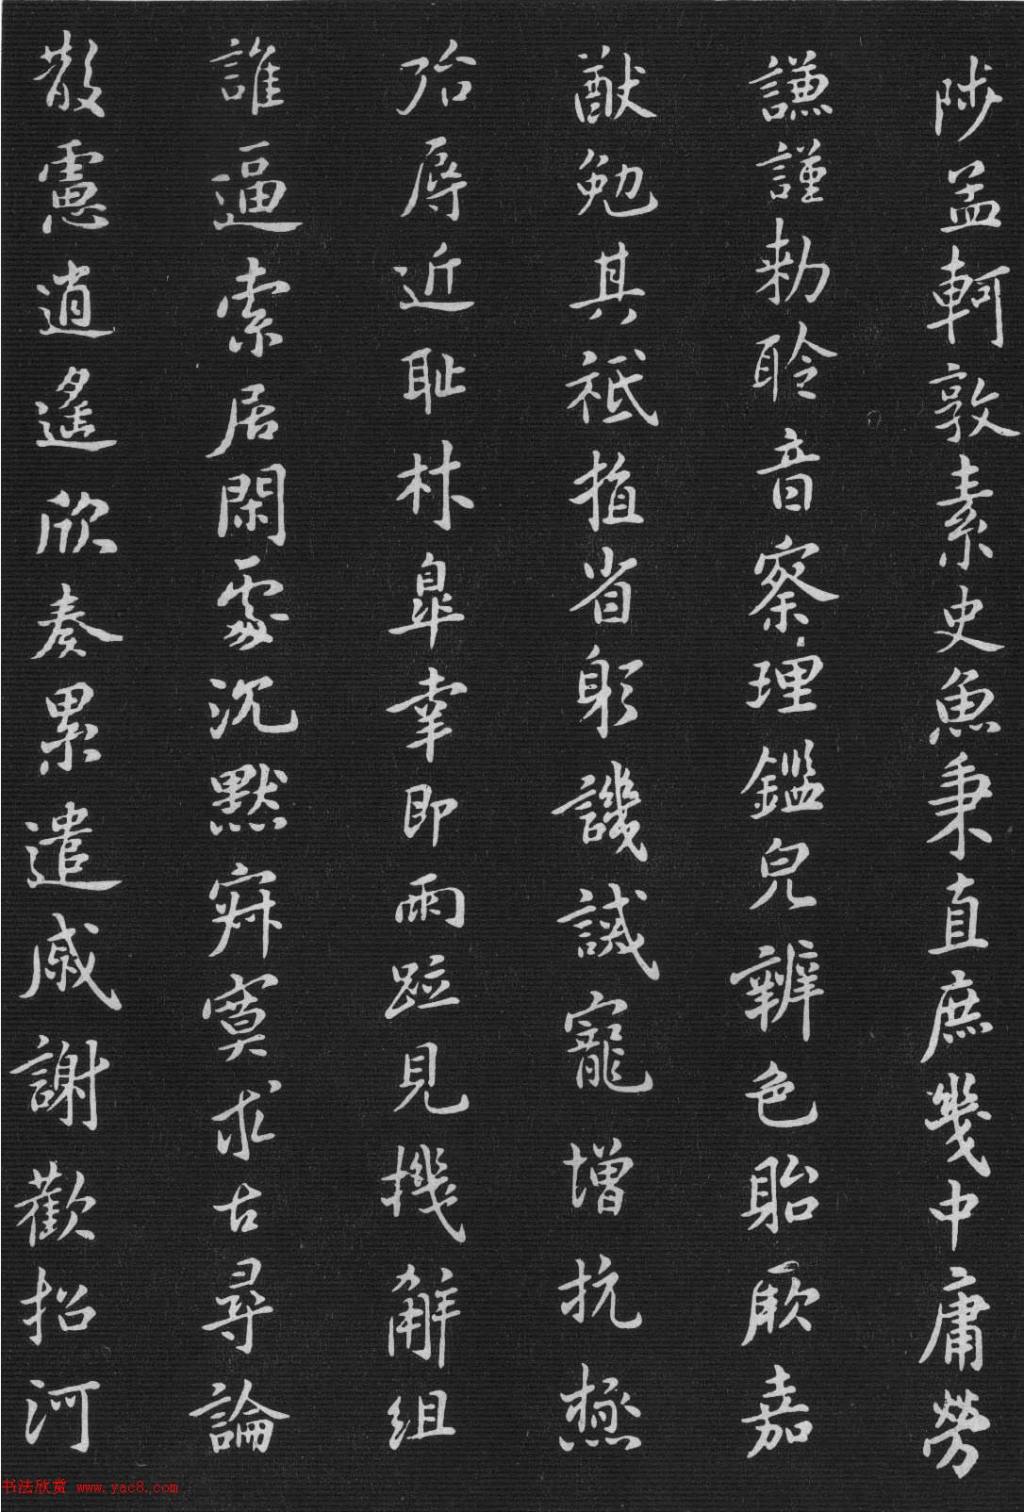 陟孟軻敦素史魚秉直庶幾中庸勞
謙謹勅聆音察理鑑皃辨色貽厥嘉
猷勉其祗植省躬譏誡寵增抗極
殆辱近恥林皐幸即兩疏見機解組
誰逼索居閑處沉默寂寞求古尋論
散慮逍遙欣奏累遣慼謝歡招河
书法欣赏 www.yac8.com